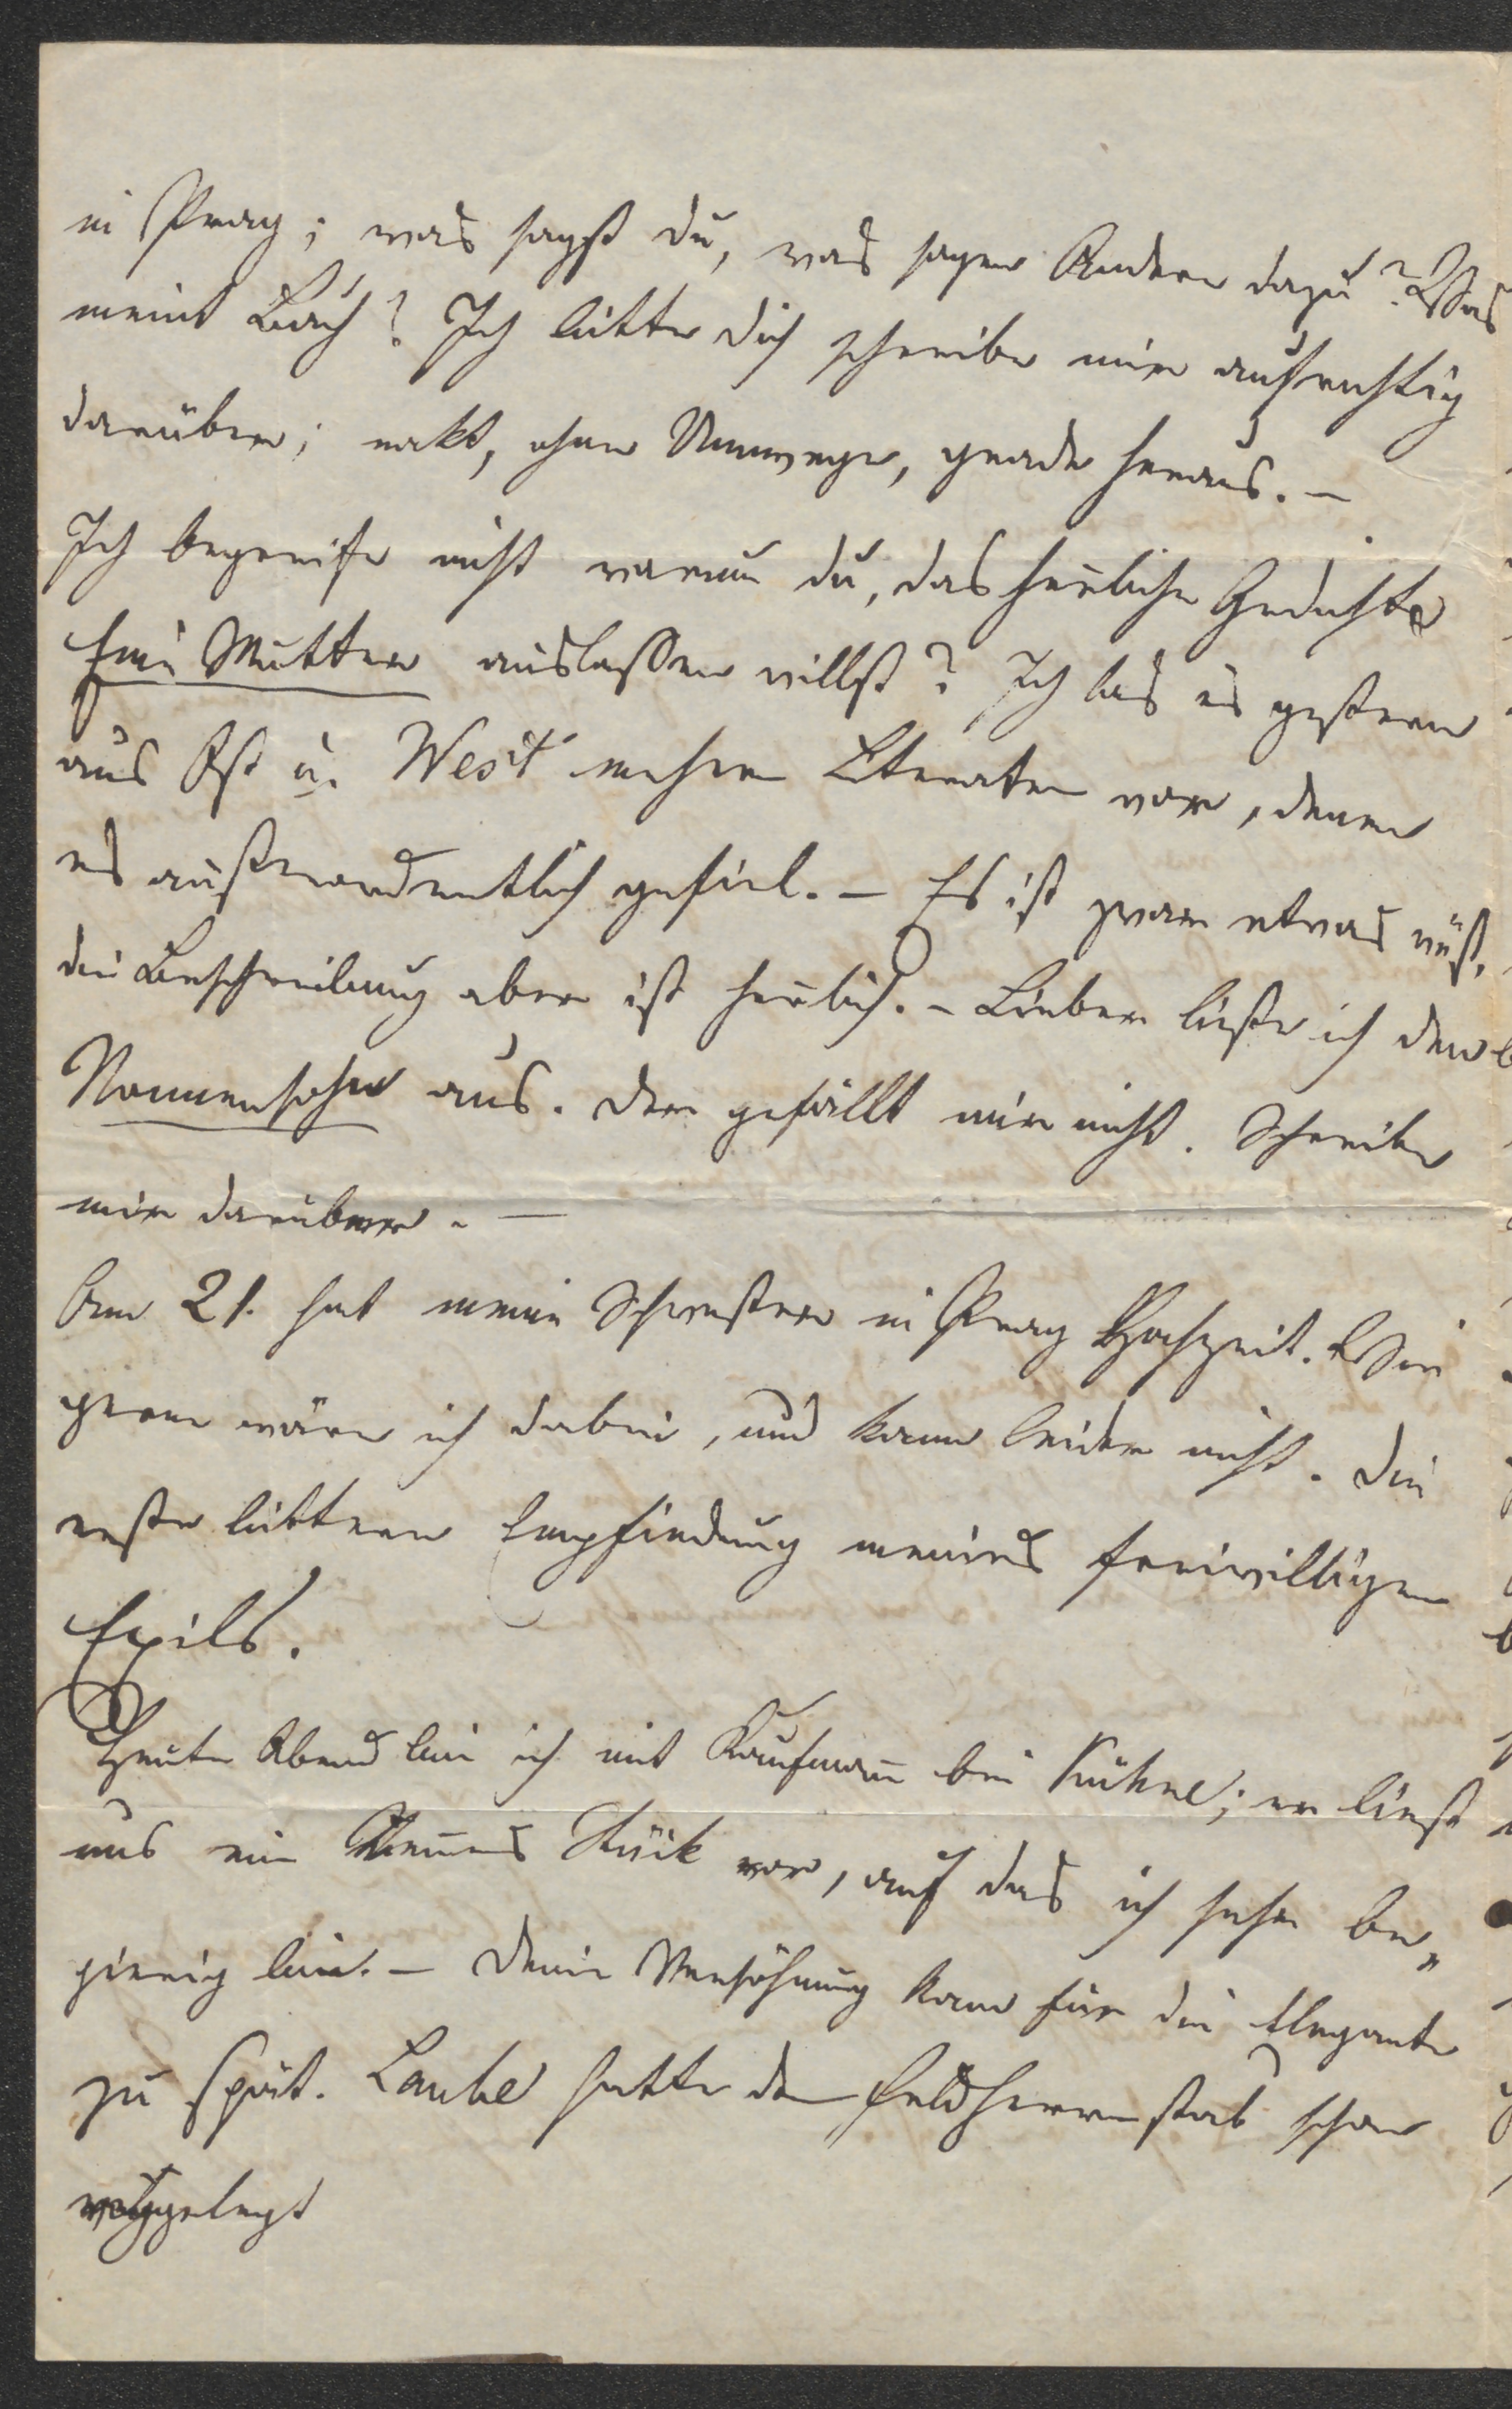 in Prag; was sagst du, was sagen Andere dazu? Was
meint Bach? Ich bitte dich schreibe mir aufrichtig
darüber; nakt, ohne Umwege, grade heraus. –
Ich begreife nicht warum du, das herrliche Gedicht
Eine Mutter auslassen willst? Ich las es gestern
aus Ost u. West mehren Literaten vor, denen
es außerordentlich gefiel. – Es ist zwar etwas wüst,
die Beschreibung aber ist herrlich. – Lieber ließe ich den
Nonnensohn aus. Der gefällt mir nicht. Schreibe
mir darüber. –
Am 21. hat meine Schwester in Prag Hochzeit. Wie
gern wäre ich dabei, und kann leider nicht. Die
erste bittere Empfindung meines freiwilligen
Exils.
Heute Abend bin ich mit Kaufmann bei Kühne; er liest
uns ein Stück vor, auf das ich sehr be„
gierig bin. – Deine Versöhnung kam für die Elegante
zu spät. Laube hatte den Feldherrnstab schon
weggelegt